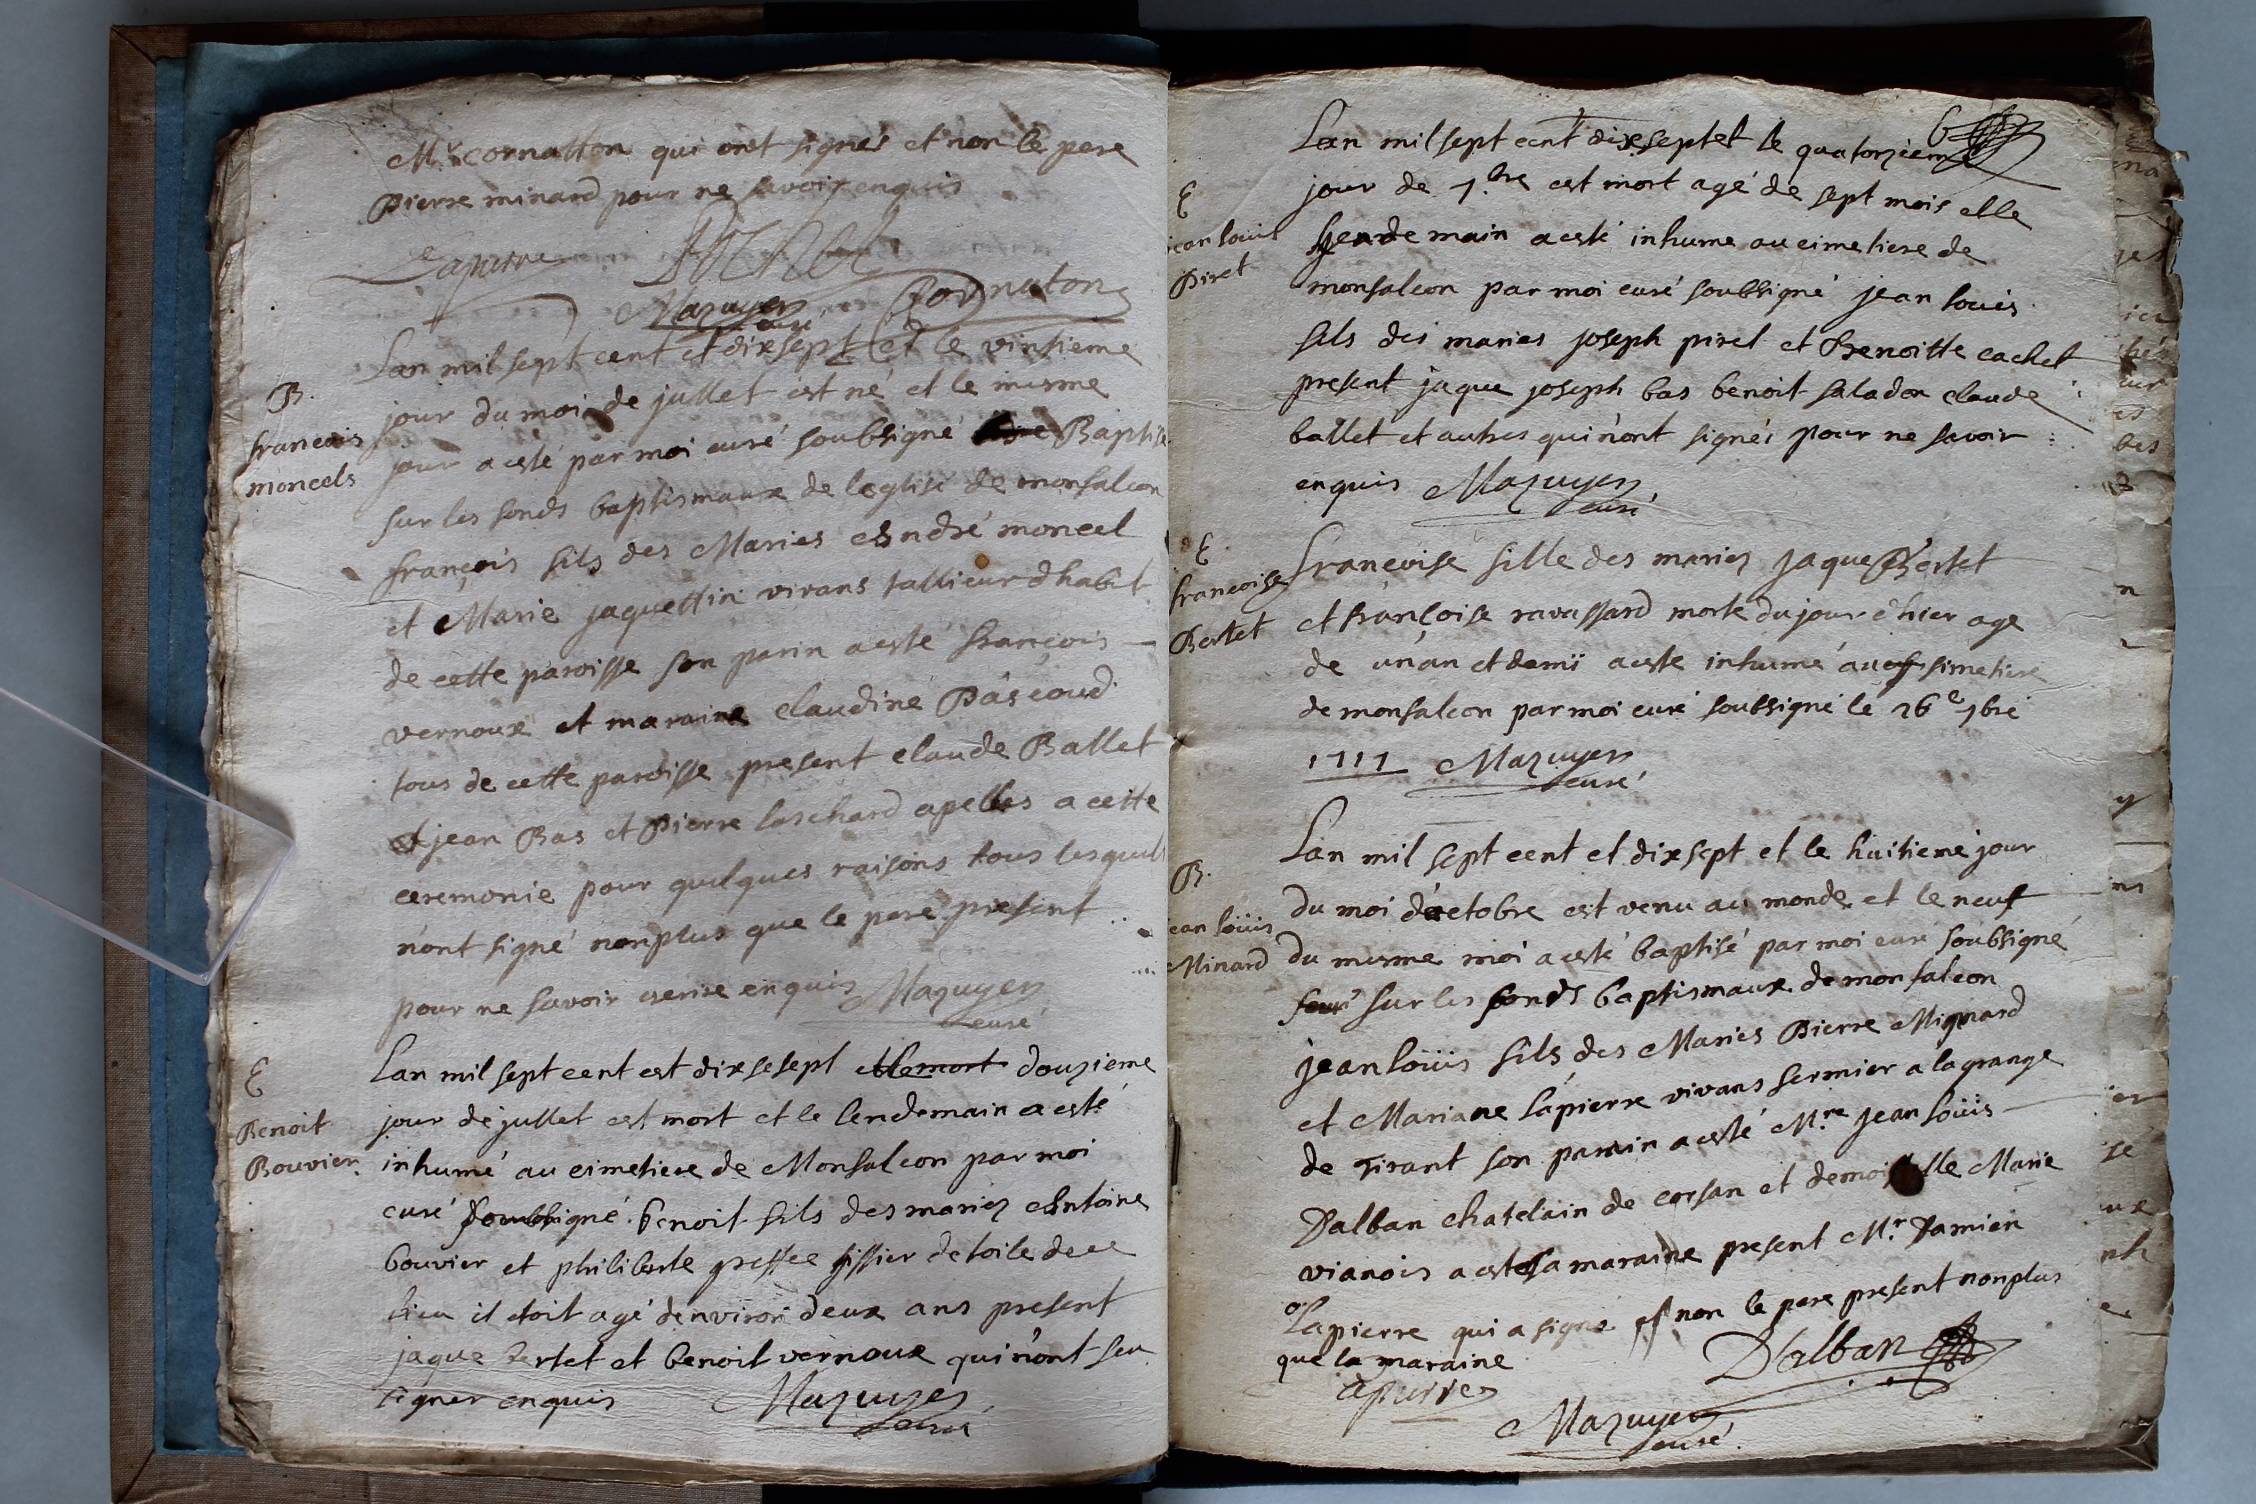 Mr cornatton qui ont signés et non le pere
Pierre minard pour ne savoir enquis
Lapierre
Mazuyer Cornaton
curé
Lan mil sept cent et dixsept et le vintieme
B. jour du moi de jullet est né et le mesme
francois jour a esté par moi curé soubsigné Baptisé
moncels sur les fonds baptismaux de leglise de monfalcon
françois fils des Maries André moncel
et Marie jaquettin vivans tallieur dhabit
de cette paroisse son parin a esté françois
vernoux et maraine claudine Pascoud
tous de cette paroisse present claude Ballet
et jean Bas et Pierre laschard apelles a cette
ceremonie pour quelques raisons tous lesquels
n'ont signé nonplus que le pere present
pour ne savoir escrire enquis Mazuyer
curé
E Lan mil sept cent est dixsesept douzieme
Benoit jour de jullet est mort et le lendemain a esté
Bouvier inhumé au cimetiere de Monfalcon par moi
curé soubsigné benoit fils des mariez Antoine
bouvier et philiberte gressee tissier de toile de ce
lieu il etoit agé denviron deux ans present
jaque bertet et benoit vernoux qui n'ont seu
signer enquis Mazuyer
curé
6
Lan mil sept cent dixseptet le quatorzieme
E jour de 7.bre est mort agé de sept mois elle
jean louis lendemain a esté inhume au cimetiere de
Piret monfalcon par moi curé soubsigné jean louis
fils des maries joseph piret et Benoitte cachet
present jaque joseph bas benoit saladon claude
ballet et autres qui n'ont signés pour ne savoir
enquis Mazuyer
curé
E francoise fille des mariez jaque Bertet
francoise et françoise ravassard morte du jour d'hier age
Bertet de un an et demi a este inhumé au simetiere
de monfalcon par moi curé soubsigné le 26e 7bre
1717 Mazuyer
curé
Lan mil sept cent et dixsept et le huitieme jour
B. du moi doctobre est venu au monde et le neuf
jean louis du mesme moi a esté baptisé par moi curé soubsigné
Minard sur les fonds baptismaux de monfalcon
jean louis fils des Maries Pierre Mignard
et Mariane lapierre vivans fermier a la grange
de Tirant son parain a esté M.re jean louis
Dalban chatelain de corsan et demoiselle Marie
vianois a este sa maraine present M.r Damien
Lapierre qui a signé et non le pere present nonplus
que la maraine Dalban
lapierre
Mazuyer
curé